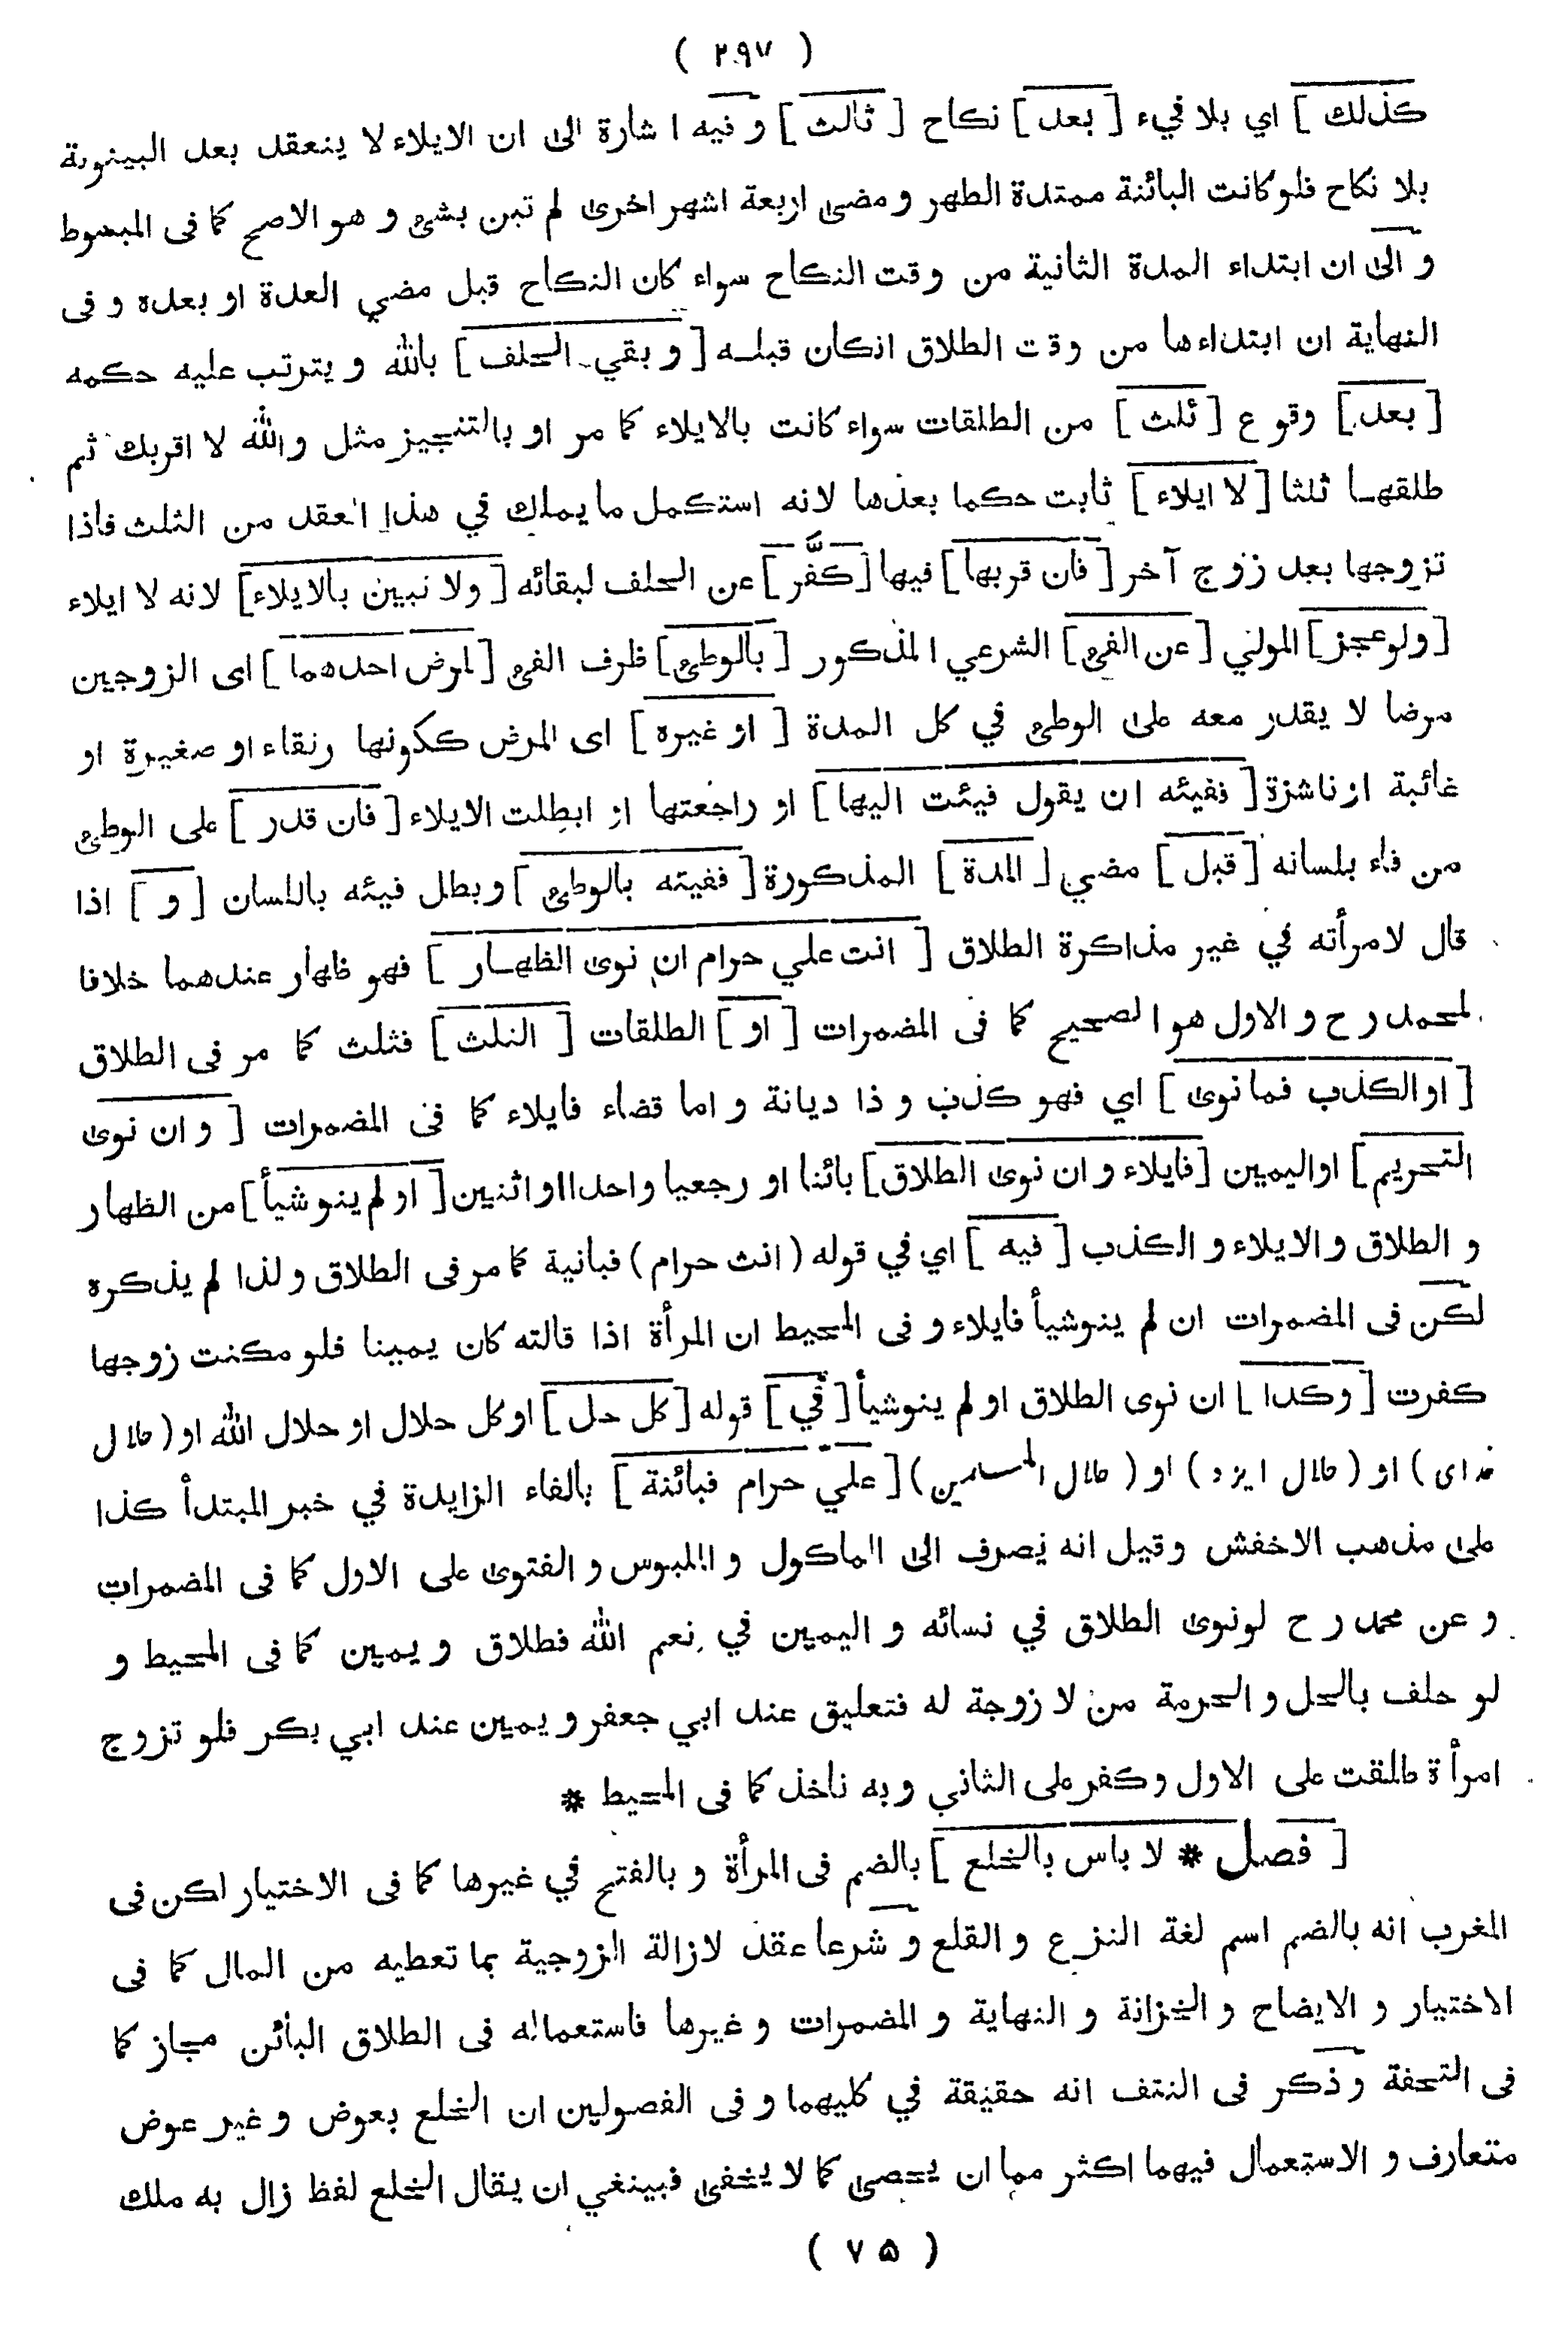 ( ٢٩٧ )
كذلك ] اي بلا فيء [ بعد ] نكاح [ ثالث ] و فيه اشارة الى ان الايلاء لا ينعقد بعد البينونة
بلا نكاح فلو كانت البائنة ممتدة الطهر و مضى اربعة اشهر اخرى لم تبن بشئ و هو الاصح كما فى المبسوط
و الى ان ابتداء المدة الثانية من وقت النكاح سواء كان النكاح قبل مضي العدة او بعده و فى
النهاية ان ابتداءها من وقت الطلاق انكان قبله [ و بقي الحلف ] بالله و يترتب عليه حكمه
[ بعد ] وقوع [ ثلث ] من الطلقات سواء كانت بالايلاء كما مر او بالتنجيز مثل والله لا اقربك ثم
طلقها ثلثا [ لا ايلاء ] ثابت حكما بعدها لانه استكمل ما يملك في هذا العقد من الثلث فاذا
تزوجها بعد زوج آخر [ فان قربها ] فيها [ كفَّر ] عن الحلف لبقائه [ ولا نبين بالايلاء ] لانه لا ايلاء
[ ولو عجز ] المولي [ عن الفئ ] الشرعي المذكور [ بالوطئ ] ظرف الفئ [ لمرض احدهما ] اى الزوجين
مرضا لا يقدر معه على الوطئ في كل المدة [ او غيره ] اى المرض ككونها رنقاء او صغيرة او
غائبة او ناشزة [ ففيئه ان يقول فيئت اليها ] او راجعتها او ابطلت الايلاء [ فان قدر ] على الوطئ
من فاء بلسانه [ قبل ] مضي [ المدة ] المذكورة [ ففيئه بالوطئ ] و بطل فيئه باللسان [ و ] اذا
قال لامرأته في غير مذاكرة الطلاق [ انت علي حرام ان نوى الظهار ] فهو ظهار عندهما خلافا
لمحمد ر ح و الاول هو الصحيح كما فى المضمرات [ او ] الطلقات [ الثلث ] فثلث كما مر فى الطلاق
[ او الكذب فما نوى ] اي فهو كذب و ذا ديانة و اما قضاء فايلاء كما فى المضمرات [ و ان نوى
التحريم ] او اليمين [ فايلاء و ان نوى الطلاق ] بائنا او رجعيا واحدا او اثنين [ او لم ينو شيأ ] من الظهار
و الطلاق و الايلاء و الكذب [ فيه ] اي في قوله ( انت حرام ) فبانية كما مر فى الطلاق و لذا لم يذكره
لكن فى المضمرات ان لم ينو شيأ فايلاء و فى المحيط ان المرأة اذا قالته كان يمينا فلو مكنت زوجها
كفرت [ وكذا ] ان نوى الطلاق او لم ينو شيأ [ في ] قوله [ كل حل ] او كل حلال او حلال الله او ( حلال
خداى ) او ( حلال ايزد ) او ( حلال المسلمين ) [ علي حرام فبائنة ] بالفاء الزايدة في خبر المبتدأ كذا
على مذهب الاخفش و قيل انه يصرف الى الماكول و الملبوس و الفتوى على الاول كما فى المضمرات
و عن محمد ر ح لو نوى الطلاق في نسائه و اليمين في نعم الله فطلاق و يمين كما فى المحيط و
لو حلف بالحل و الحرمة من لا زوجة له فتعليق عند ابي جعفر و يمين عند ابي بكر فلو تزوج
امرأة طلقت على الاول و كفر على الثاني و به ناخذ كما فى المحيط *
[ فصل * لا باس بالخلع ] بالضم فى المرأة و بالفتح في غيرها كما فى الاختيار لكن فى
المغرب انه بالضم اسم لغة النزع و القلع و شرعا عقد لازالة الزوجية بما تعطيه من المال كما فى
الاختيار و الايضاح و الخزانة و النهاية و المضمرات و غيرها فاستعماله فى الطلاق البائن مجاز كما
فى التحفة و ذكر فى النتف انه حقيقة في كليهما و فى الفصولين ان الخلع بعوض و غير عوض
متعارف و الاستعمال فيهما اكثر مما ان يحصى كما لا يخفى فينبغي ان يقال الخلع لفظ زال به ملك
( ٧٥ )